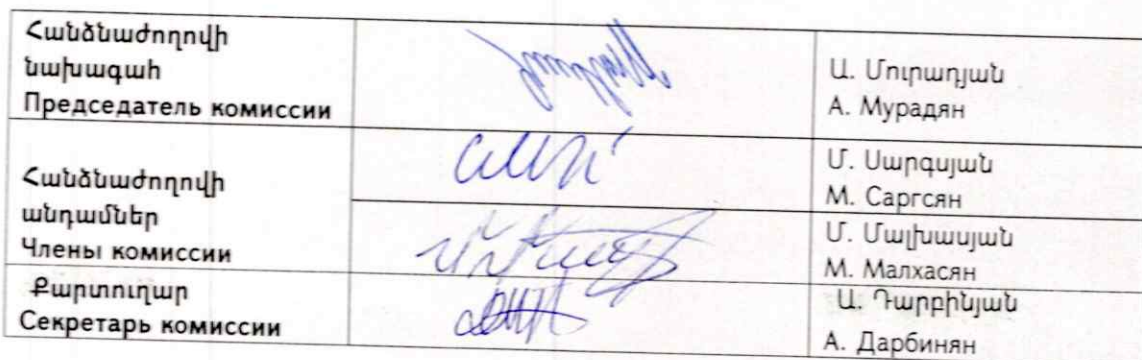 Հանձնաժողովի
նախագահ
Председатель комиссии
Ա. Մուրադյան
А. Мурадян
Հանձնաժողովի
անդամներ
Члены комиссии
Մ. Սարգսյան
М. Саргсян
Մ. Մալխասյան
М. Малхасян
Քարտուղար
Секретарь комиссии
Ա. Դարբինյան
А. Дарбинян